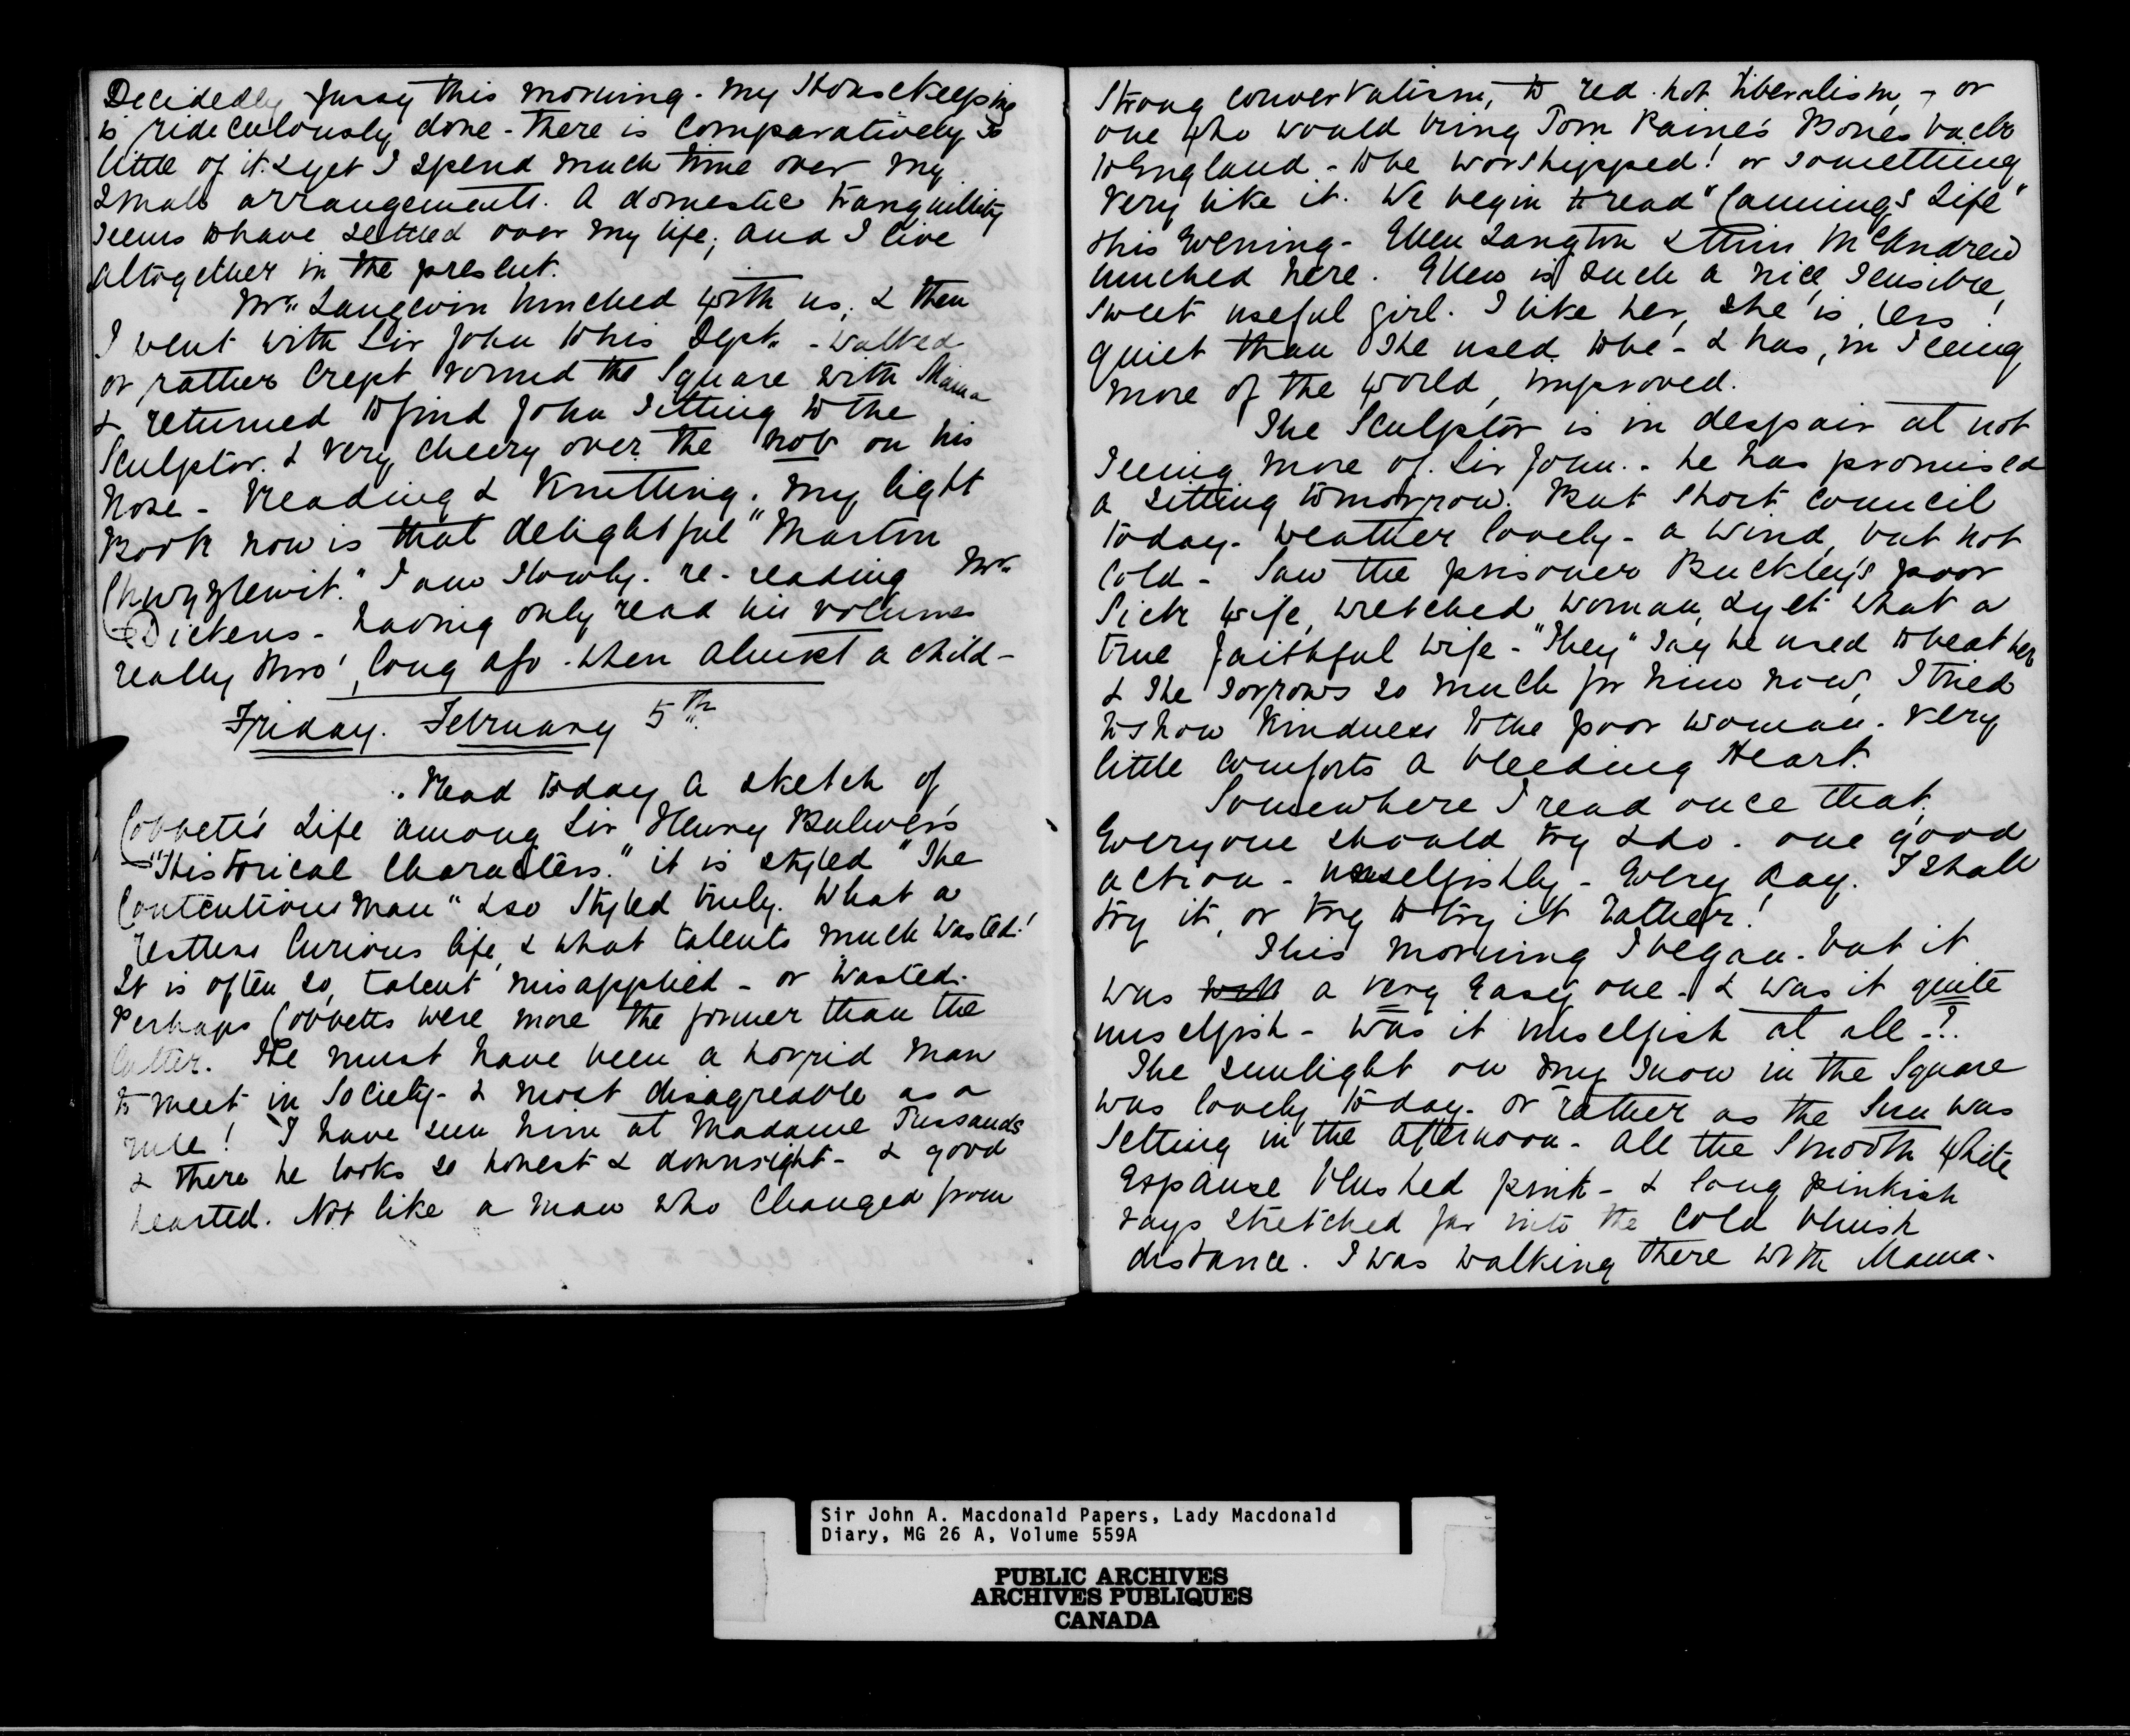 Decidedly fussy this morning. My Housekeeping
is ridiculously done - there is comparatively so
little of it & yet I spend much time over my
small arrangements. A domestic tranquillity
seems to have settled over my life; and I live
altogether in the present.
Mr. Langevin lunched with us, & then
I went with Sir John to his Dept. - walked
or rather crept round the Square with Mama
& returned to find John sitting to the
Sculptor. & very cheery over the nob on his
Nose - Reading & Knitting. My light
Book now is that delightful "Martin
Chuzzlewit." I am slowly re-reading Mr.
Dickens - having only read his volumes
really thro', long ago when almost a child -
Friday. February 5th
Read today a sketch of
Cobbett's Life among Sir Henry Bulwer's
"Historical Characters." it is styled "The
Contentious Man" & so styled truly. What a
restless curious life, & what talents much wasted!
It is often so, talent misapplied - or wasted.
Perhaps Cobbetts were more the former than the
latter. He must have been a horrid man
to meet in Society - & most disagreable as a
rule! I have seen him at Madame Tussauds
& there he looks so honest & downright - & good
hearted. Not like a man who changed from
strong convervatism, to red hot liberalism, - or
one who would bring Tom Paine's Bones back
to England - to be worshipped! or something
very like it. We begin to read "Canning's Life"
this Evening - Ellen Langton & McAndrew
lunched here. Ellen is such a nice, sensible,
sweet useful girl. I like her, she is less
quiet than she used to be - & has, in seeing
more of the world, improved.
The Sculptor is in despair at not
seeing more of Sir John. - he has promised
a sitting tomorrow. But short Council
today - weather lovely - a wind, but not
cold - Saw the prisoner Buckley's poor
sick wife, wretched woman, & yet what a
true faithful wife - "They" say he used to beat her
& she sorrows so much for him now, I tried
to show kindness to the poor woman. Very
little comforts a bleeding Heart.
Somewhere I read once that,
Everyone should try & do - one good
action - unselfishly - Every day. I shall
try it, or try to try it rather!
This morning I began - but it
was a very Easy one - & was it quite
unselfish - was it unselfish at all - ?.
The sunlight on my snow in the Square
was lovely today - or rather as the Sun was
setting in the afternoon - all the smooth white
Expanse blushed pink - & long pinkish
rays stretched far into the cold bluish
distance. I was walking there with Mama.
Sir John A. Macdonald Papers, Lady Macdonald
Diary, MG 26 A, Volume 559A
PUBLIC ARCHIVES
ARCHIVES PUBLIQUES
CANADA